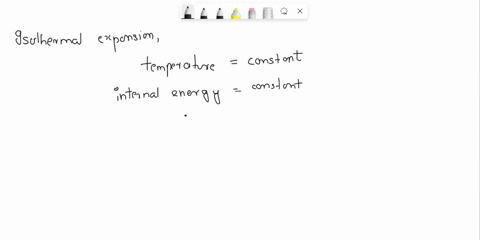 Isothermal expansion,
temperature = constant
internal energy = constant